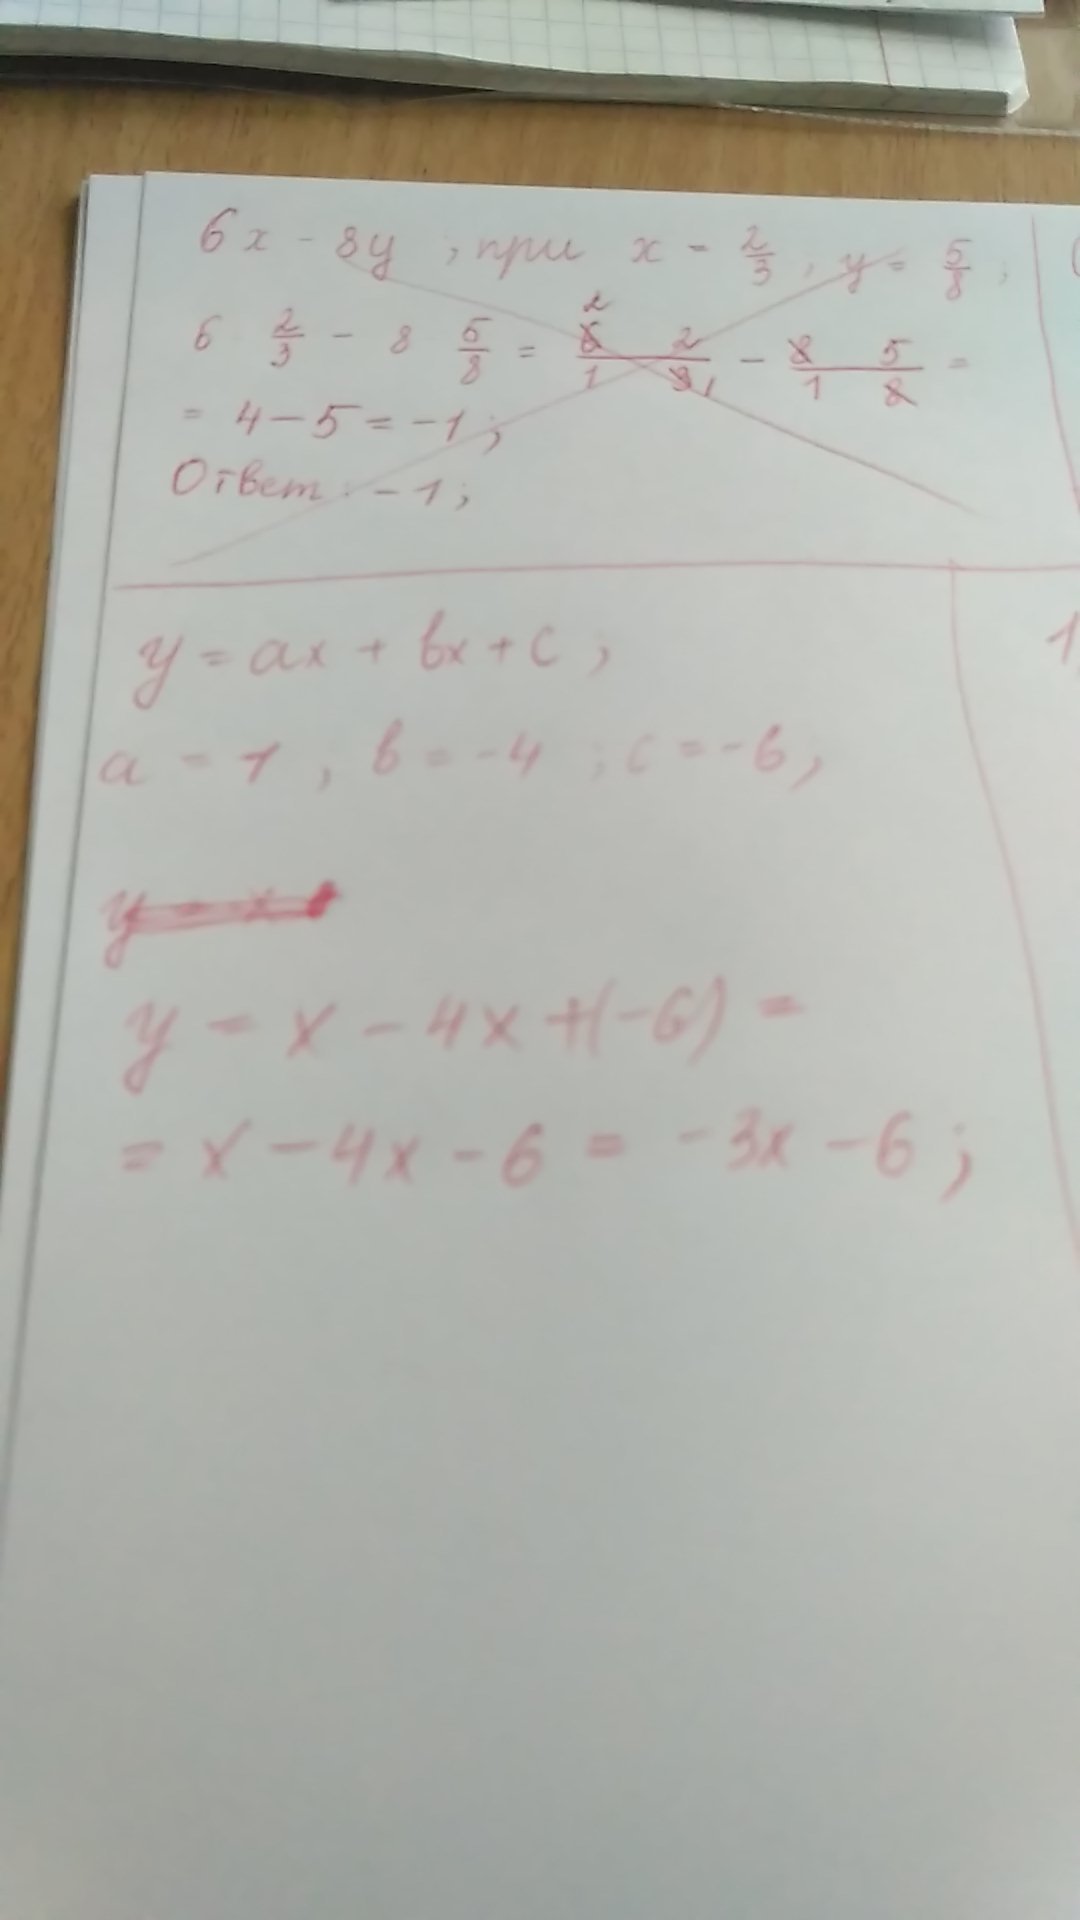 6x - 8y ; при x = 2/3 , y = 5/8 ;
6 2/3 - 8 5/8 = 6 2 2 / 1 3 1 - 8 5 / 1 8 =
= 4 - 5 = -1 ;
Ответ: -1 ;
y = ax + bx + c ;
a = 1 , b = -4 ; c = -6 ;
y = x - 4x + (-6) =
= x - 4x - 6 = -3x - 6 ;